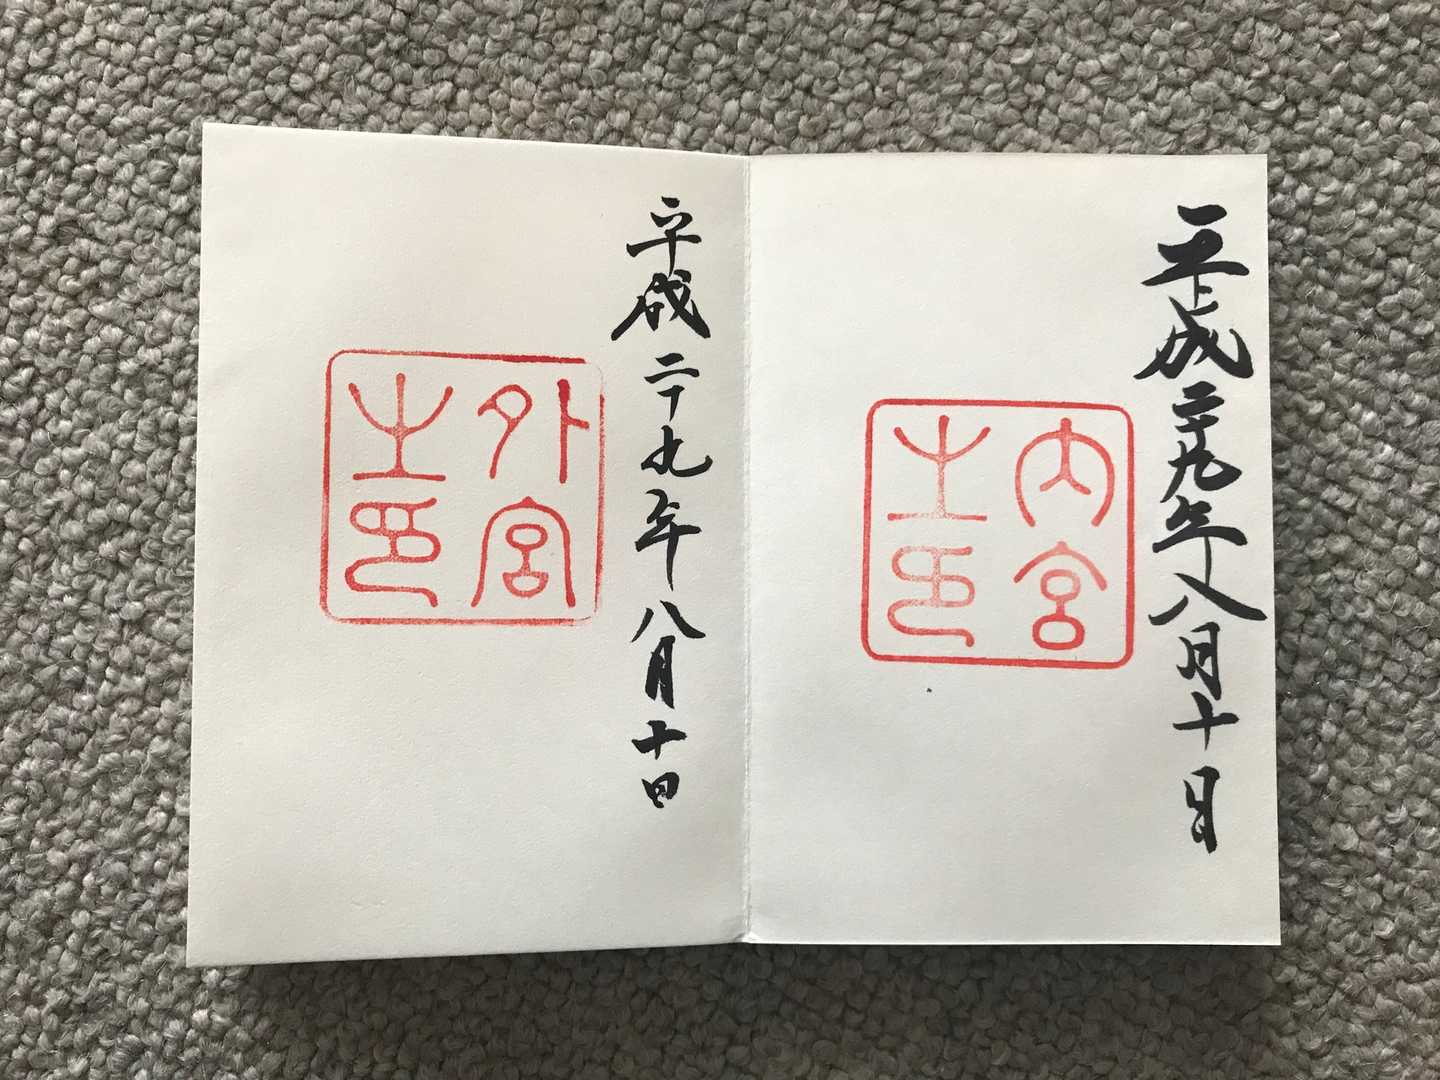 平成二十九年八月十日
内宮
之印
平成二十九年八月十日
外宮
之印